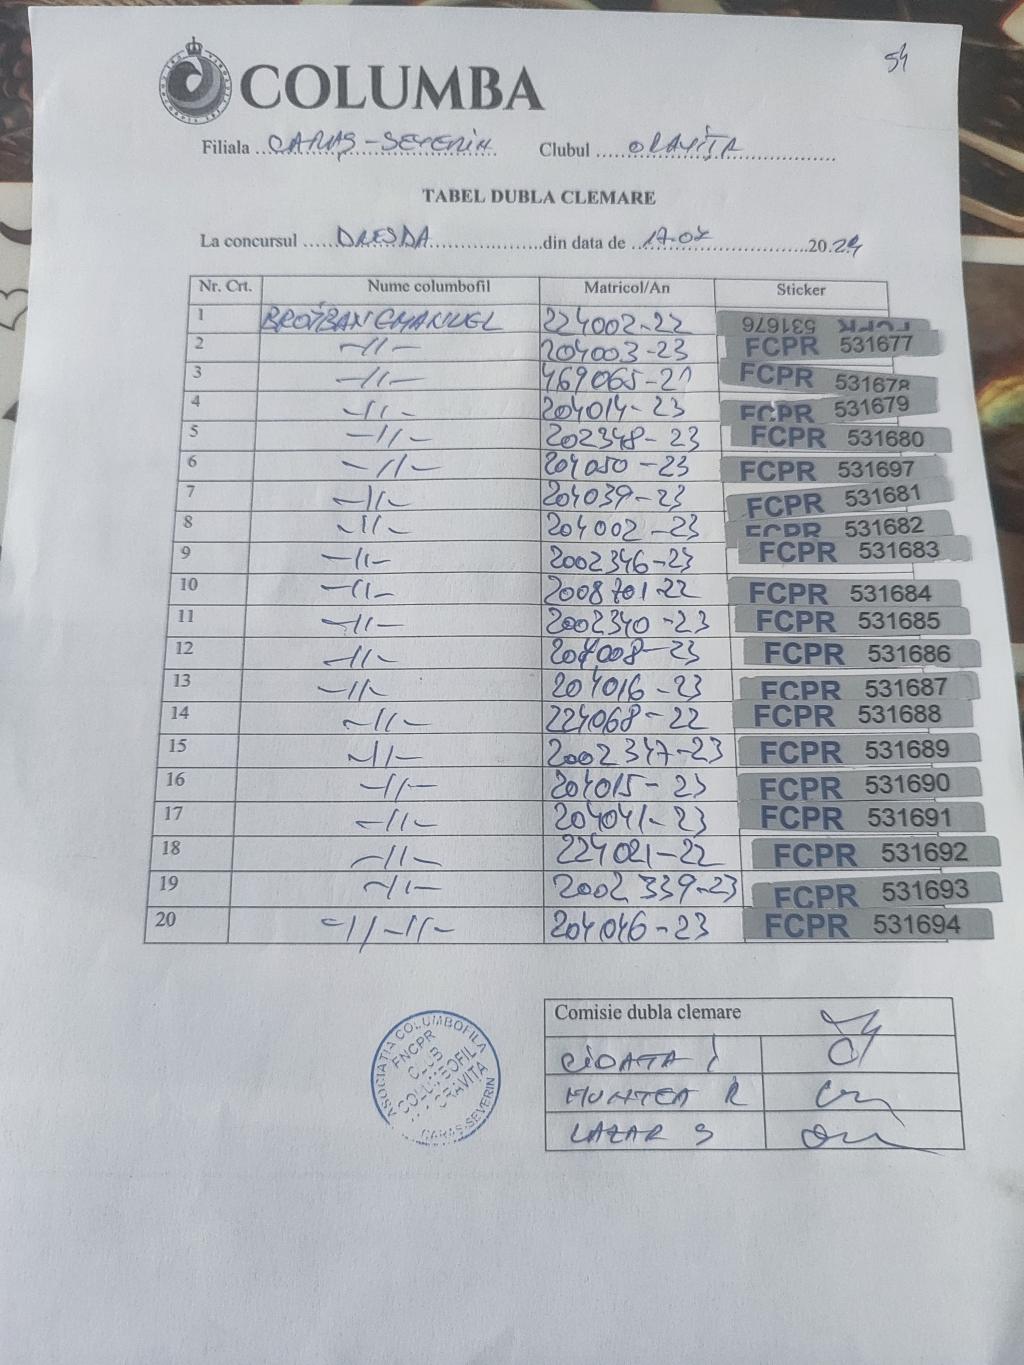 54
COLUMBA
Filiala ..CARAȘ-SEVERIN.. Clubul ....ORAVIȚA....
TABEL DUBLA CLEMARE
La concursul .....DRESDA..........din data de ..17.07............20.24
Nr. Crt. Nume columbofil Matricol/An Sticker
1 BROÎBAN EMANUEL 224002-22 FCPR 531676
2 -//- 204003-23 FCPR 531677
3 -//- 469065-21 FCPR 531678
4 -//- 204014-23 FCPR 531679
5 -//- 202348-23 FCPR 531680
6 -//- 204050-23 FCPR 531697
7 -//- 204039-23 FCPR 531681
8 -//- 204002-23 FCPR 531682
9 -//- 2002346-23 FCPR 531683
10 -//- 2008701-22 FCPR 531684
11 -//- 2002340-23 FCPR 531685
12 -//- 204008-23 FCPR 531686
13 -//- 204016-23 FCPR 531687
14 -//- 224068-22 FCPR 531688
15 -//- 2002347-23 FCPR 531689
16 -//- 204015-23 FCPR 531690
17 -//- 204041-23 FCPR 531691
18 -//- 224021-22 FCPR 531692
19 -//- 2002339-23 FCPR 531693
20 -//-//- 204046-23 FCPR 531694
Comisie dubla clemare
CIOATA I
MUNTEA R
LAZAR S
ASOCIAȚIA COLUMBOFILA
FNCPR
CLUB
COLUMBOFIL
ORAVITA
CARAS-SEVERIN